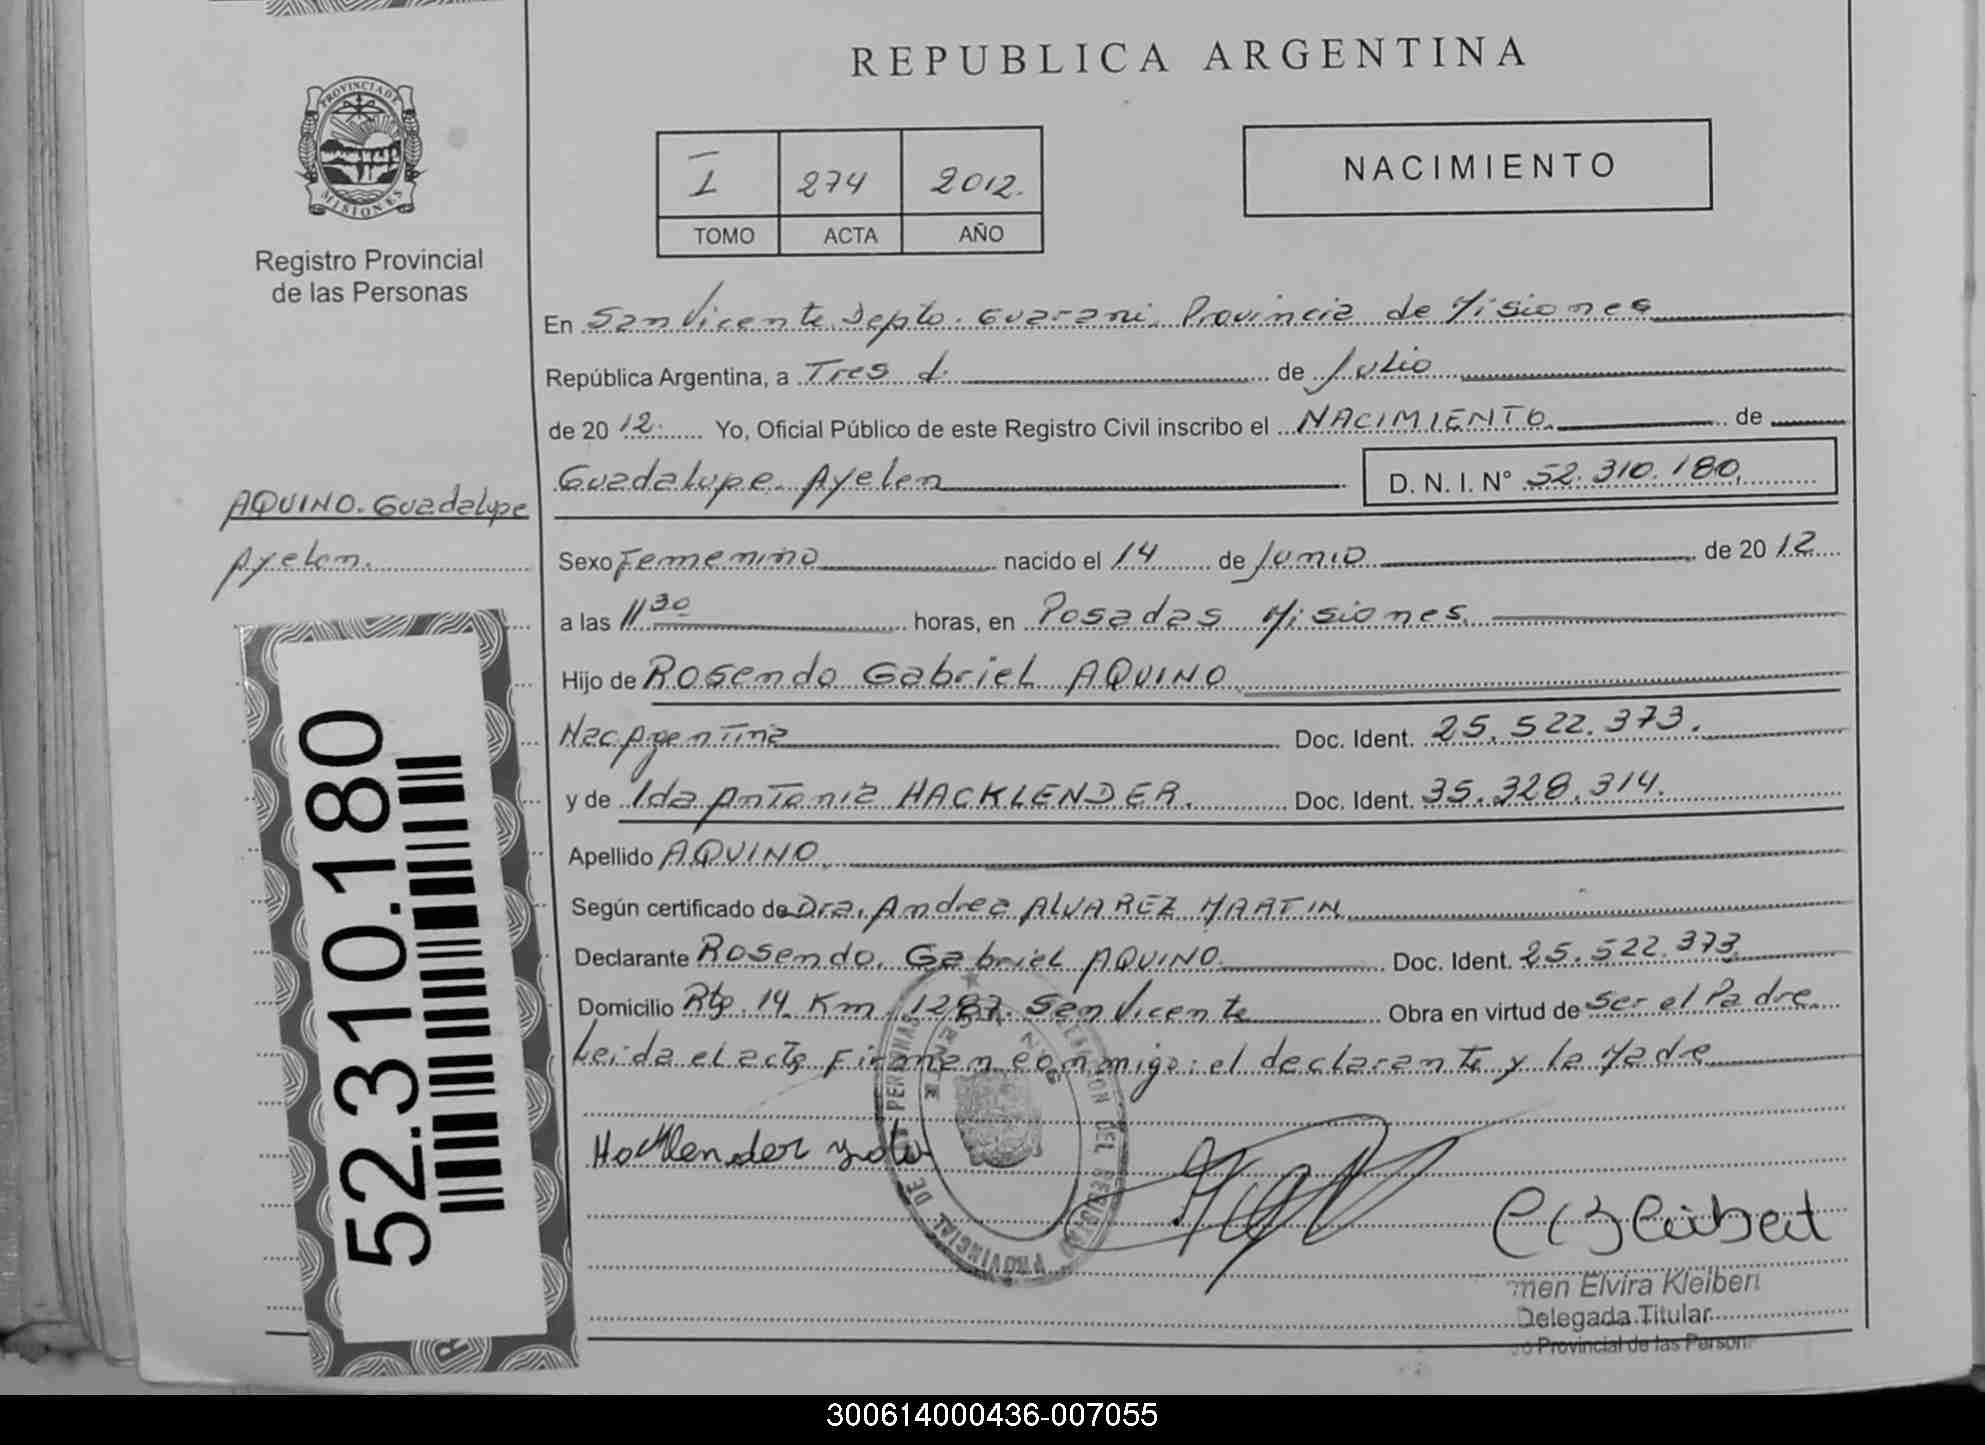 REPUBLICA ARGENTINA
PROVINCIA DE
MISIONES
Registro Provincial
de las Personas
I 274 2012.
TOMO ACTA AÑO
NACIMIENTO
En San Vicente Depto. Guarani. Provincia de Misiones
República Argentina, a Tres d. de Julio
de 2012. Yo, Oficial Público de este Registro Civil inscribo el NACIMIENTO. de
Guadalupe Ayelen D. N. I. N° 52.310.180.
AQUINO. Guadalupe
Ayelen.
Sexo Femenino nacido el 14 de Junio de 2012
a las 11 30 horas, en Posadas Misiones.
Hijo de Rosendo Gabriel AQUINO
Nac Argentina Doc. Ident. 25.522.373.
y de Ida Antonia HACKLENDER. Doc. Ident. 35.328.314.
Apellido AQUINO.
Según certificado de Dra. Andrea ALVAREZ MARTIN
Declarante Rosendo. Gabriel AQUINO Doc. Ident. 25.522.373
Domicilio Rta. 14 Km 1287. San Vicente Obra en virtud de Ser el Padre.
Leida el acta Firman conmigo: el declarante y la Madre
52.310.180
Hacklender
PROVINCIAL DE PERSONAS
men Elvira Kleibert
Delegada Titular
Provincial de las Person
300614000436-007055